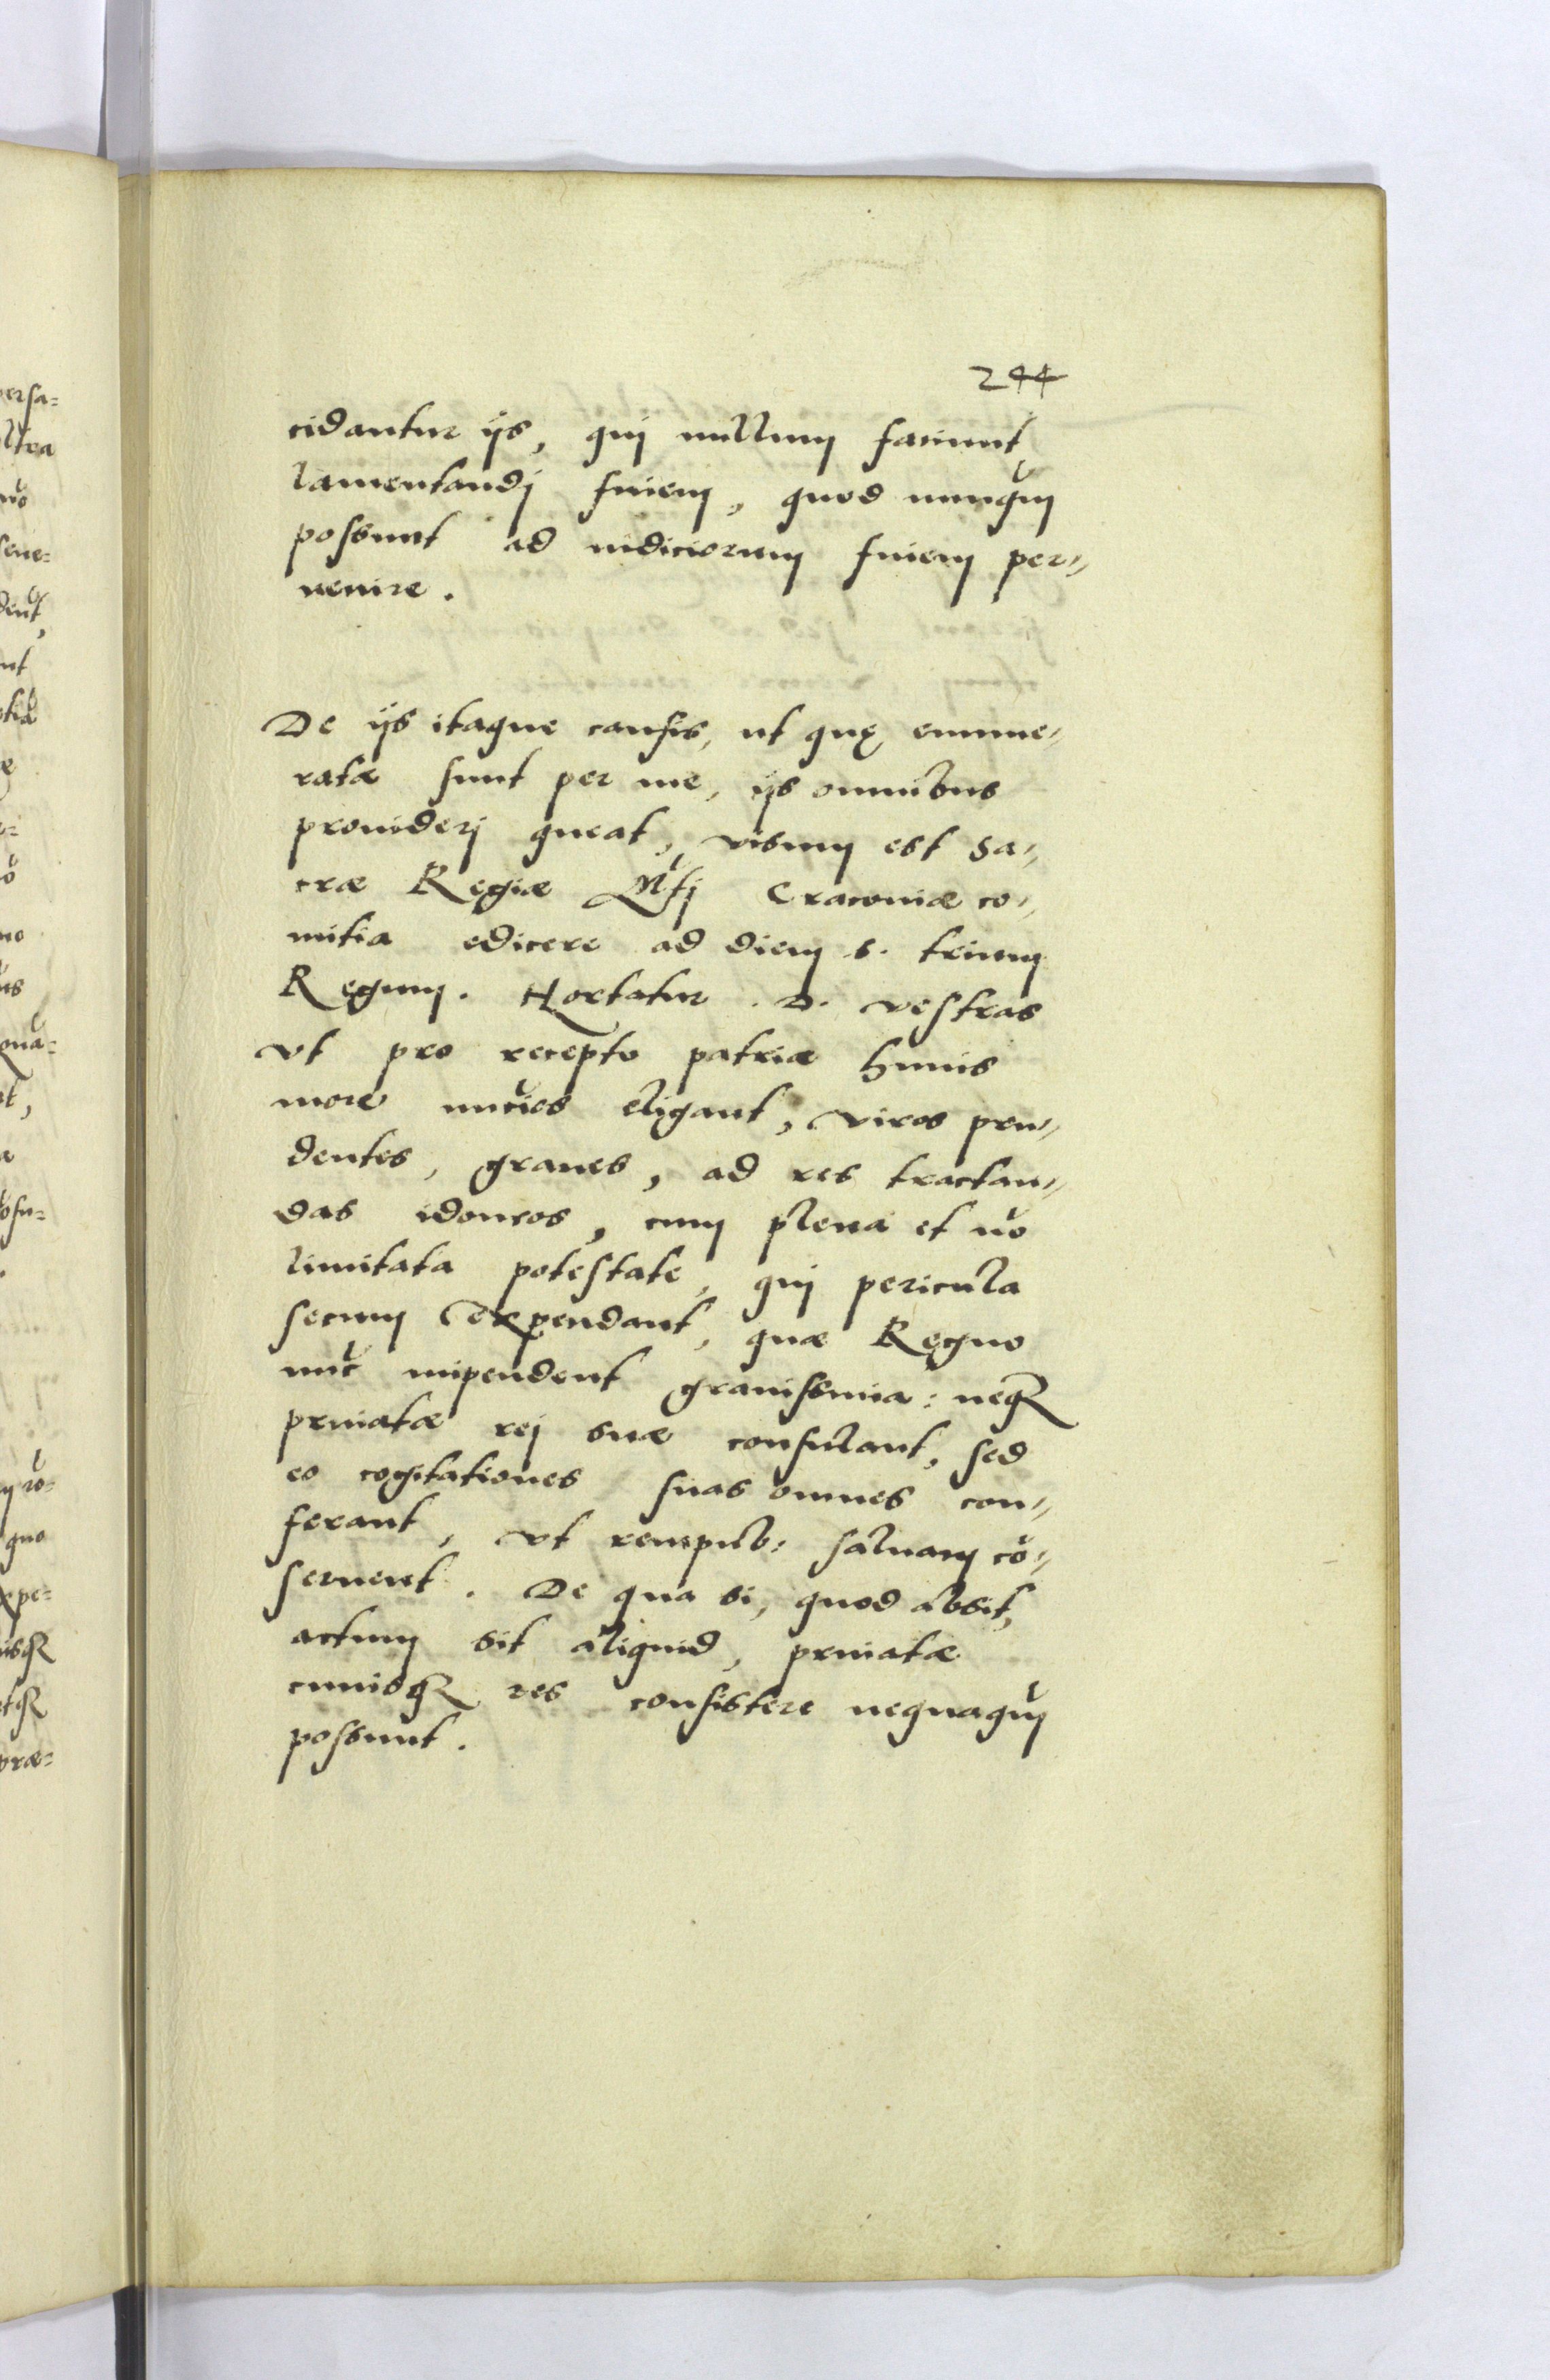 244
cidantur ijs, qui nullum faciunt
lamentandj finem, quod nunqũ
possunt ad iudiciorum finem per=
uenire.
De ijs itaque causis, ut quę enume=
ratæ sunt per me, ijs omnibus
prouiderj queat, visum est Sa=
cræ Regiæ Mt̃j Cracouiæ co=
mitia edicere ad diem s. trium
Regum. Hortatur D. vestras
vt pro recepto patriæ huius
more nũcios eligant, viros pru=
dentes, graues, ad res tractan=
das idoneos, cum plena et nõ
limitata potestate, qui pericula
secum expendant, quæ Regno
nũc impendent grauissima: neq3
priuatæ rej suæ consulant, sed
eo cogitationes suas omnes con=
ferant, vt rempub: saluam cõ=
seruent. De qua si, quod absit,
actum sit aliquid, priuatæ
cuiusq3 res consistere nequaqũ
possunt.